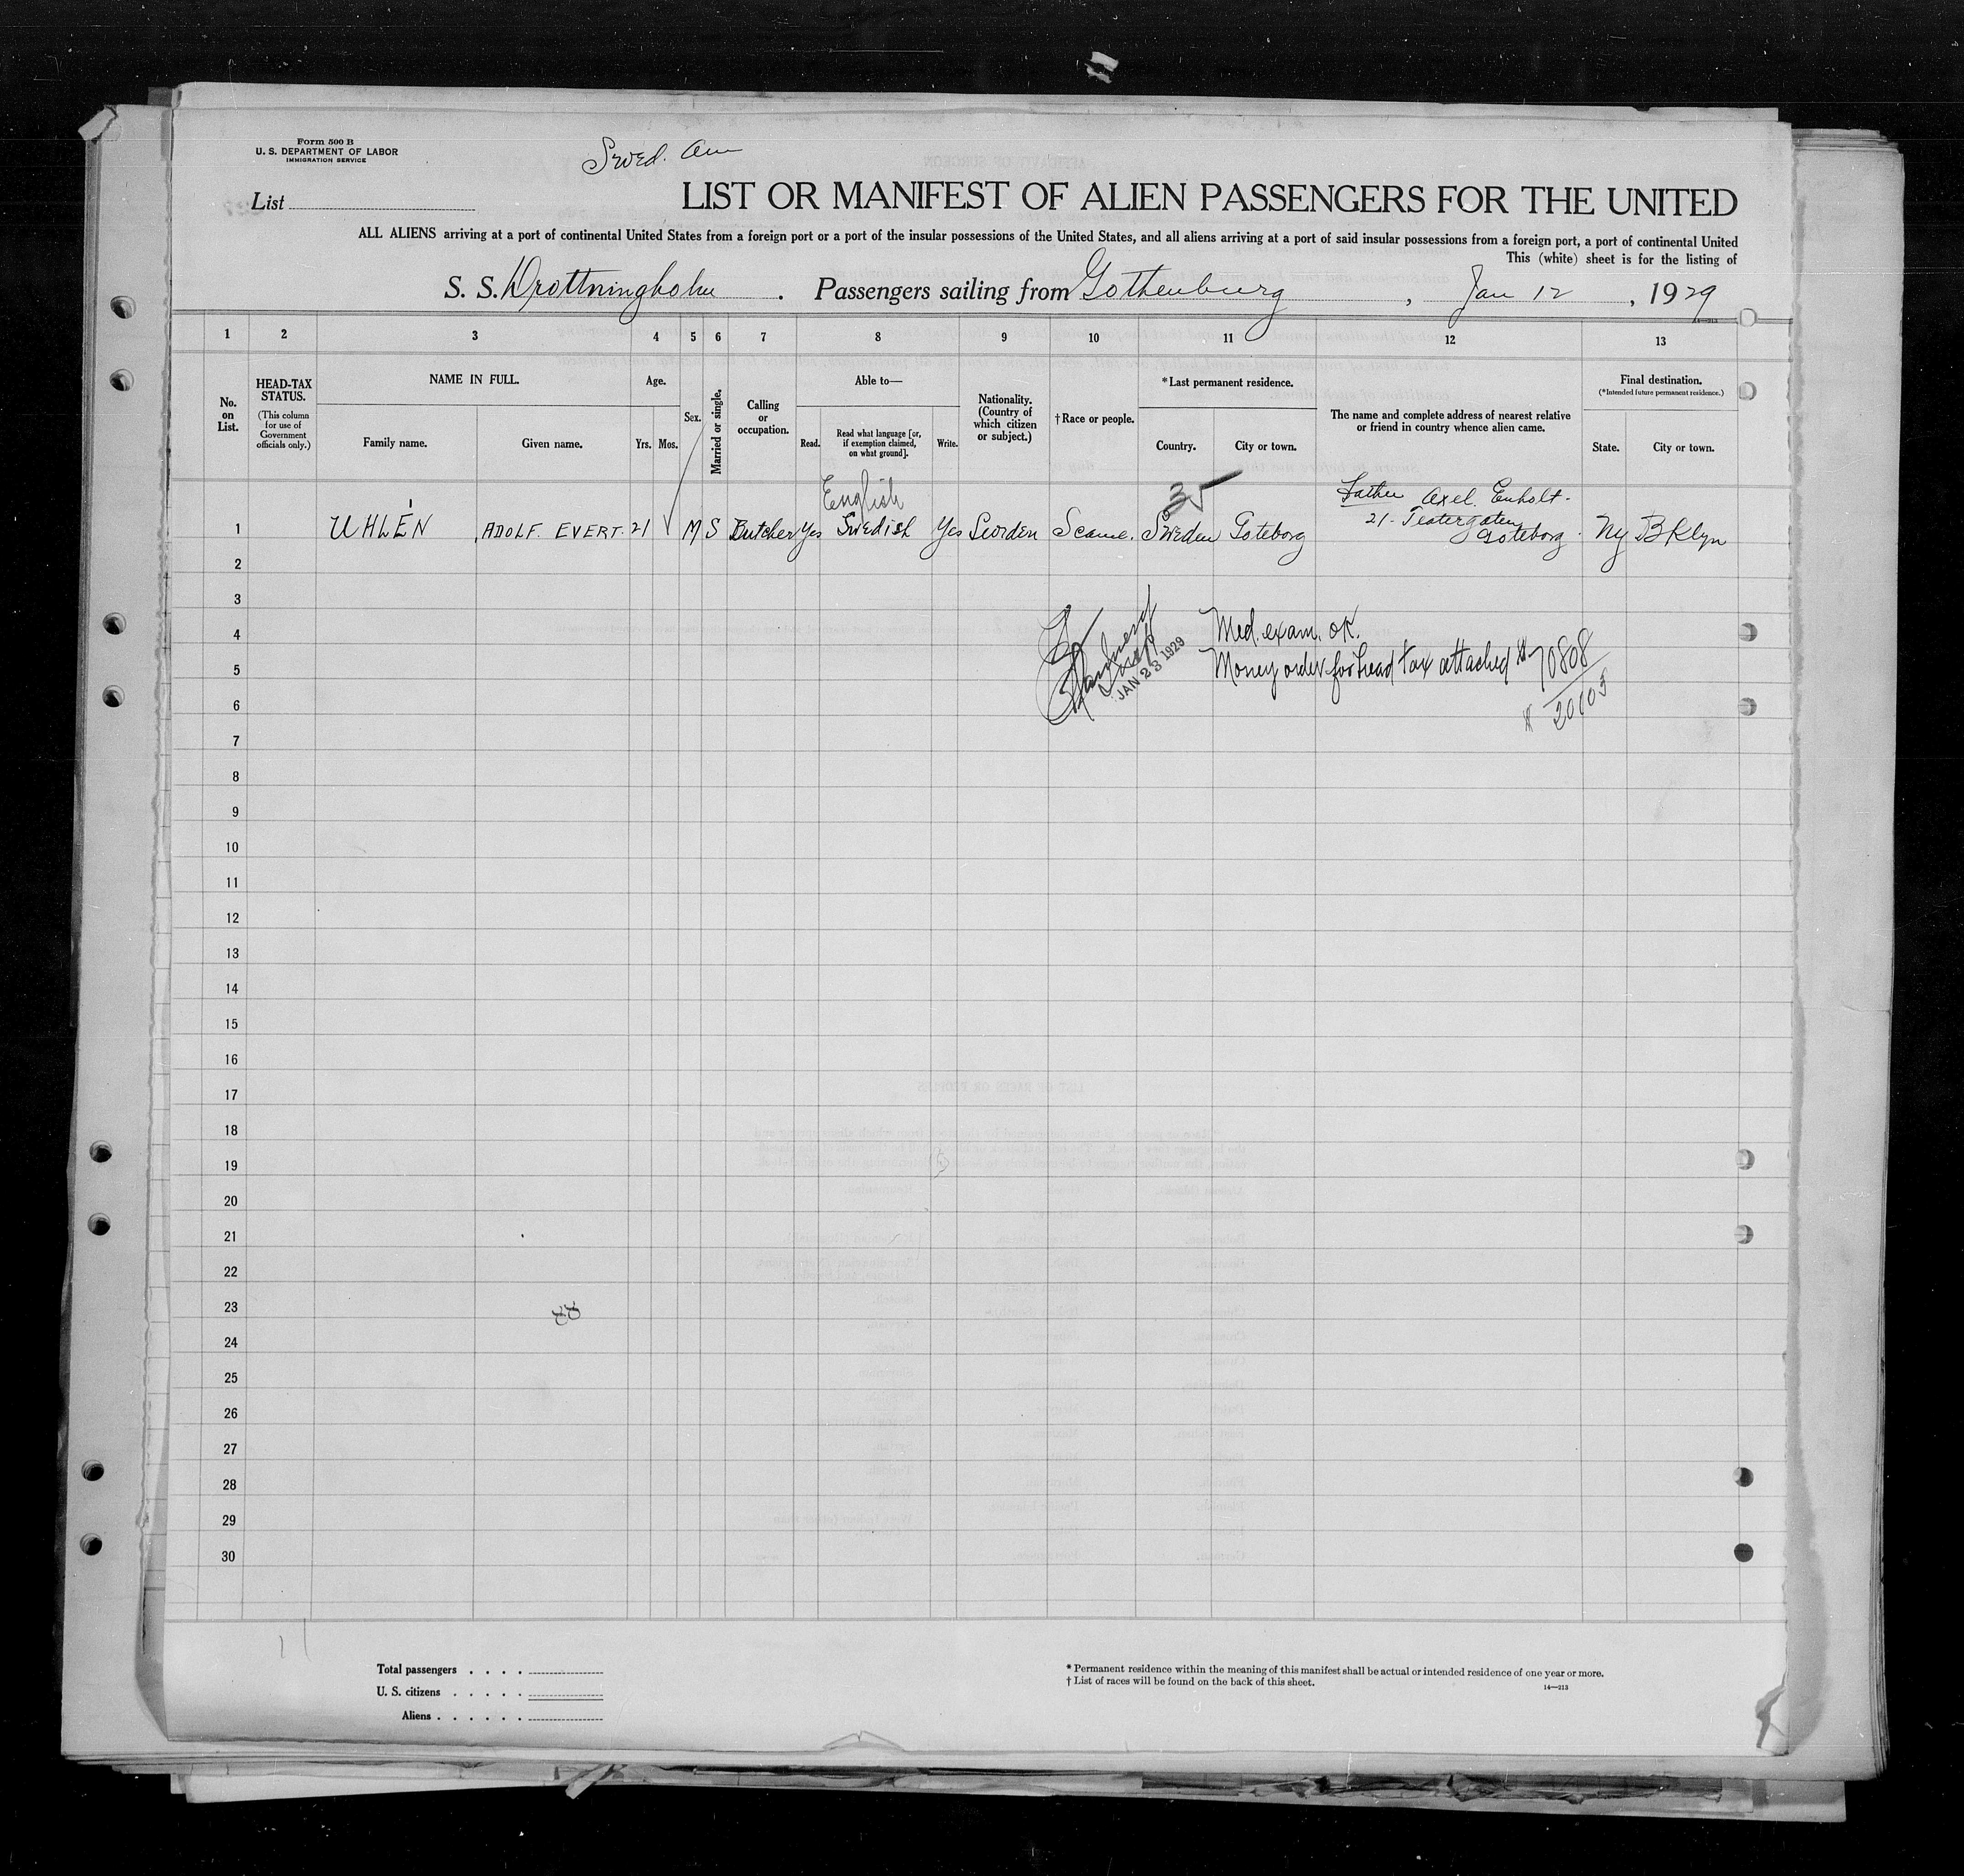 Form 500 B
U. S. DEPARTMENT OF LABOR
IMMIGRATION SERVICE
Swed. Am
List
LIST OR MANIFEST OF ALIEN PASSENGERS FOR THE UNITED
ALL ALIENS arriving at a port of continental United States from a foreign port or a port of the insular possessions of the United States, and all aliens arriving at a port of said insular possessions from a foreign port, a port of continental United
This (white) sheet is for the listing of
S. S. Drottningholm . Passengers sailing from Gothenburg , Jan 12 , 1929
14—213
1 2 3 4 5 6 7 8 9 10 11 12 13
No. on List.
HEAD-TAX STATUS.
(This column for use of Government officials only.)
NAME IN FULL.
Family name.
Given name.
Age.
Yrs. Mos.
Sex.
Married or single.
Calling or occupation.
Able to—
Read.
Read what language [or, if exemption claimed, on what ground].
Write.
Nationality. (Country of which citizen or subject.)
† Race or people.
* Last permanent residence.
Country.
City or town.
The name and complete address of nearest relative or friend in country whence alien came.
Final destination.
(* Intended future permanent residence.)
State.
City or town.
English
35
Father Axel. Enholt.
1 UHLÉN ADOLF. EVERT. 21 M S Butcher Yes Swedish Yes Sweden Scand. Sweden Goteborg 21 - Teatergatan Goteborg. Ny BKlyn
2
3
4 Med. exam. OK.
5 Money order for head tax attached # 70808
JAN 23 1929
6 # 20105
7
8
9
10
11
12
13
14
15
16
17
18
19
20
21
22
23
24
25
26
27
28
29
30
Total passengers . . . .
U. S. citizens . . . . .
Aliens . . . . . .
* Permanent residence within the meaning of this manifest shall be actual or intended residence of one year or more.
† List of races will be found on the back of this sheet.
14—213